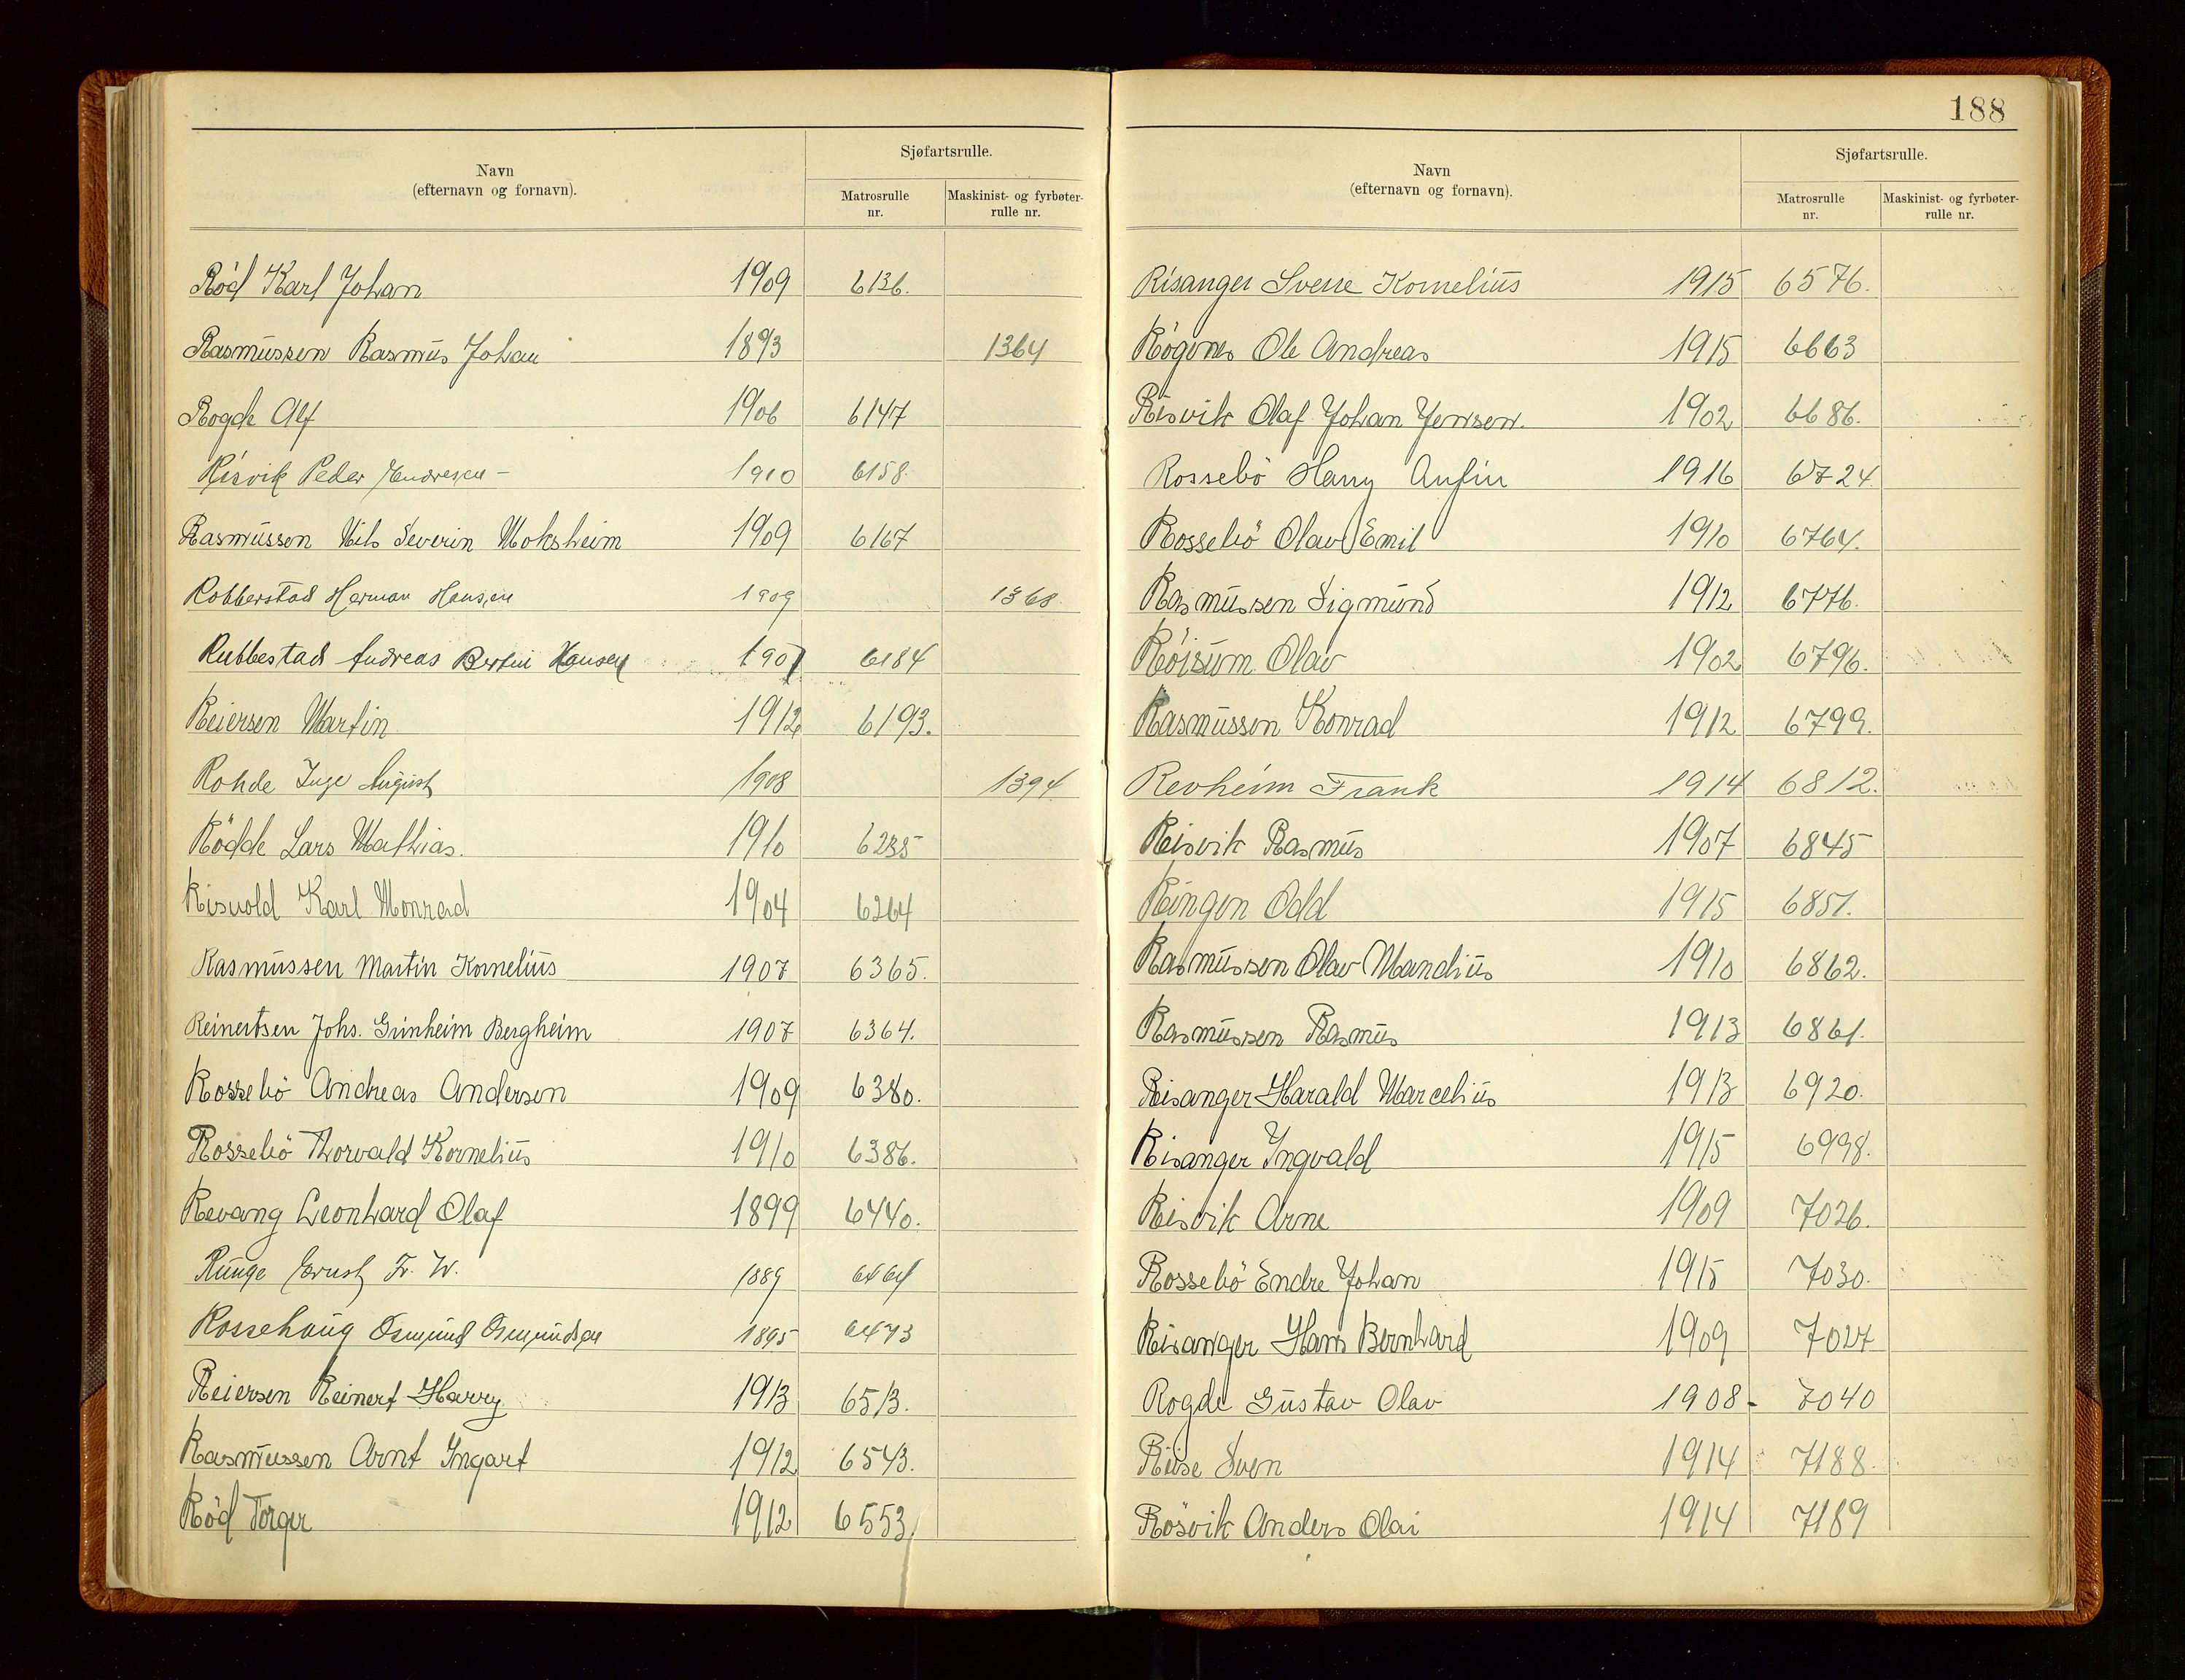 188
Navn
(efternavn og fornavn).
Sjøfartsrulle.
Matrosrulle
nr.
Maskinist- og fyrbøter-
rulle nr.
Rød Karl Johan 1909 6136.
Rasmussen Rasmus Johan 1893 1364
Rogde Alf 1906 6147
Risvik Peder Endresen - 1910 6158.
Rasmussen Nils Severin Moksheim 1909 6167
Robberstad Herman Hansen 1909 1368.
Rubbestad Andreas Bertin Hansen 1907 6184
Reiersen Martin 1912 6193.
Rohde Inge August 1908 1394
Rödde Lars Mathias. 1910 6235
Risvold Karl Monrad 1904 6264
Rasmussen Martin Kornelius 1907 6365.
Reinertsen Johs. Grinheim Bergheim 1907 6364.
Rossebö Andreas Andersen 1909 6380.
Rossebö Thorvald Kornelius 1910 6386.
Revang Leonhard Olaf 1899 6440.
Runge Ernst Fr. W. 1889 6464
Rossehaug Osmund Osmundsen 1895 6473
Reiersen Reinert Harry 1913 6513.
Rasmussen Arnt Ingart 1912 6543.
Röd Torger 1912 6553
Navn
(efternavn og fornavn).
Sjøfartsrulle.
Matrosrulle
nr.
Maskinist- og fyrbøter-
rulle nr.
Risanger Sverre Kornelius 1915 6576.
Rögenes Ole Andreas 1915 6663
Risvik Olaf Johan Jensen. 1902 6686.
Rossebö Harry Anfin 1916 6724
Rossebö Olav Emil 1910 6764.
Rasmussen Sigmund 1912 6776.
Röisum Olav 1902 6796.
Rasmussen Konrad 1912 6799.
Revheim Frank 1914 6812.
Risvik Rasmus 1907 6845
Ringen Odd 1915 6851.
Rasmussen Olav Mandius 1910 6862.
Rasmussen Rasmus 1913 6861.
Risanger Harald Marcelius 1913 6920.
Risanger Ingvald 1915 6998.
Risvik Arne 1909 7026.
Rossebö Endre Johan 1915 7030.
Risanger Hans Bernhard 1909 7027
Rogde Gustav Olav 1908- 7040
Riise Sven 1914 7188.
Rösvik Anders Olai 1914 7189